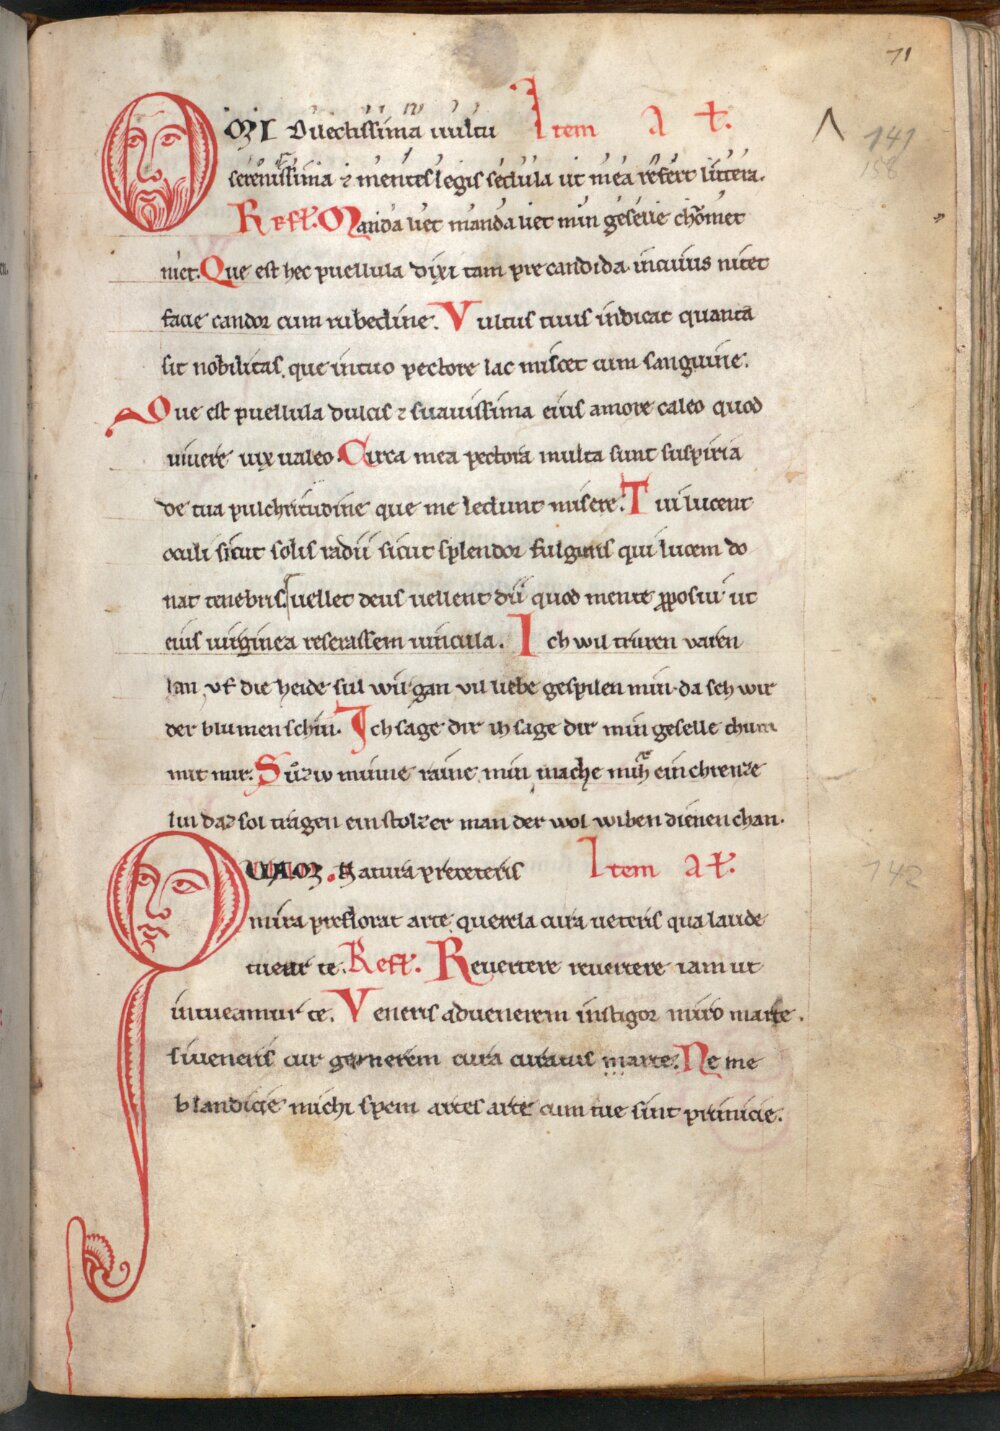 71
OMI Dilectissima uultu Item Ał.
serenissima ⁊ mentes legis sedula ut mea refert littera.
Refł. Manda liet manda liet min geselle chomet
niet. Que est hec puellula dixi tam precandida in cuius nitet
facie candor cum rubedine. Vultus tuus indicat quanta
sit nobilitas. que in tuo pectore lac miscet cum sanguine.
Que est puellula dulcis ⁊ suauissima eius amore caleo quod
uiuere uix ualeo. Circa mea pectora multa sunt suspiria
de tua pulchritudine que me ledunt misere. Tui lucent
oculi sicut solis radii sicut splendor fulguris qui lucem do
nat tenebris uellet deus uellent dii quod mente proposui ut
eius uirginea reserassem uincula. Ich wil truren varen
lan vf die heide sul wir gan vil liebe gespilen min. da seh wir
der blumen schin. Ich sage dir ih sage dir min geselle chum
mit mir. Suͦziv minne raine min mache mih ein chrenze
lin daz sol tragen ein stolzer man der wol wiben dienen chan.
141
158
QUAM Natura preceteris Item ał.
mira preflorat arte querela cura ueteris qua laude
tuear te. Refł. Reuertere reuertere iam ut
intueamur te. Veneris aduenerem instigor miro marte.
si ueneris cur gemerem cura curatus marte. Ne me
blandicie michi spem artes arte cum tue sint primicie.
142